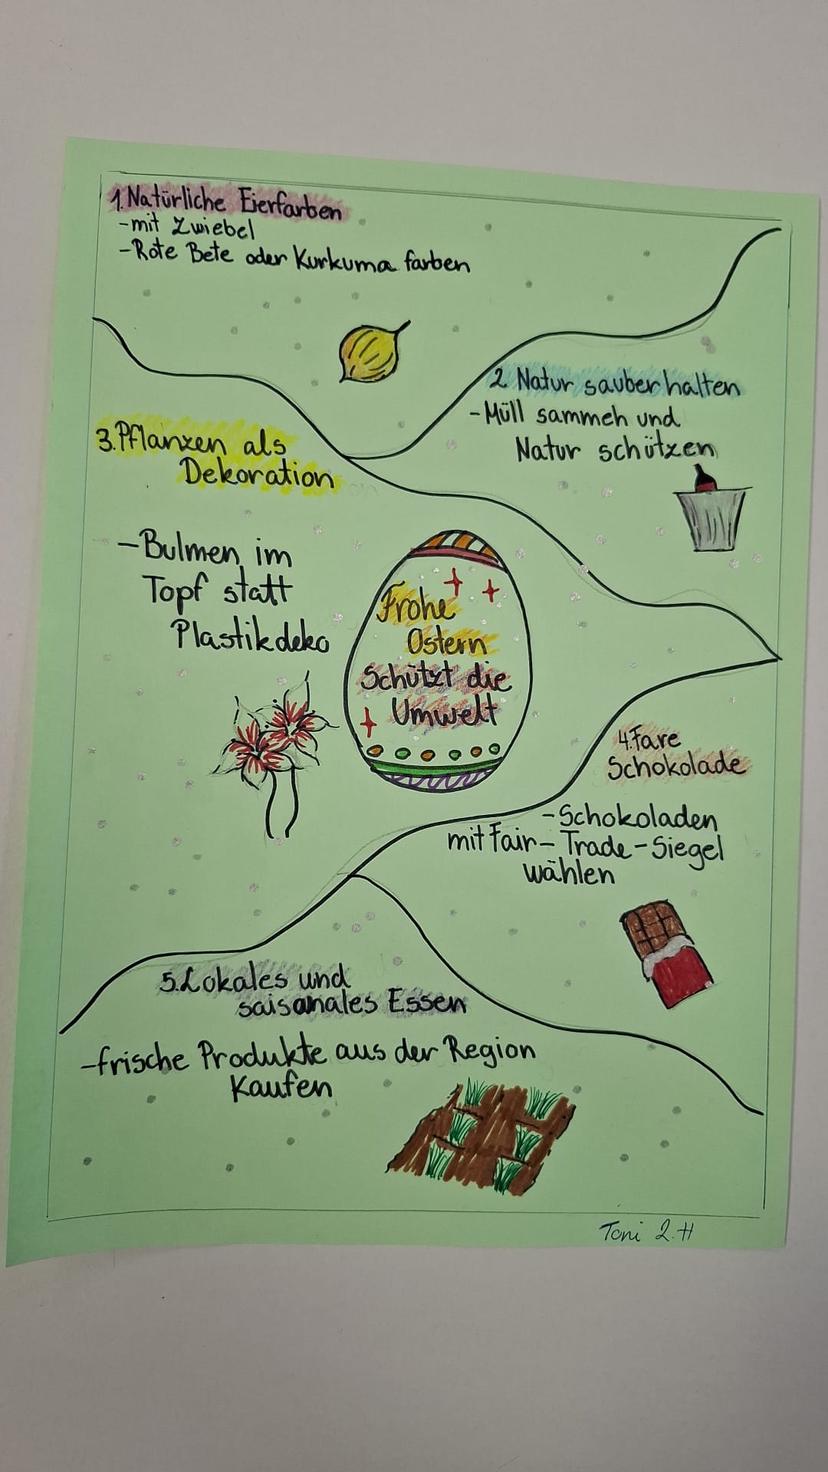 1. Natürliche Eierfarben
- mit Zwiebel
- Rote Bete oder Kurkuma farben
2. Natur sauber halten
- Müll sammeh und
Natur schützen
3. Pflanzen als
Dekoration
- Bulmen im
Topf statt
Plastikdeko
Frohe
Ostern
Schützt die
Umwelt
4. Fare
Schokolade
- Schokoladen
mit Fair-Trade-Siegel
wählen
5. Lokales und
saisanales Essen
- frische Produkte aus der Region
Kaufen
Toni 2.H